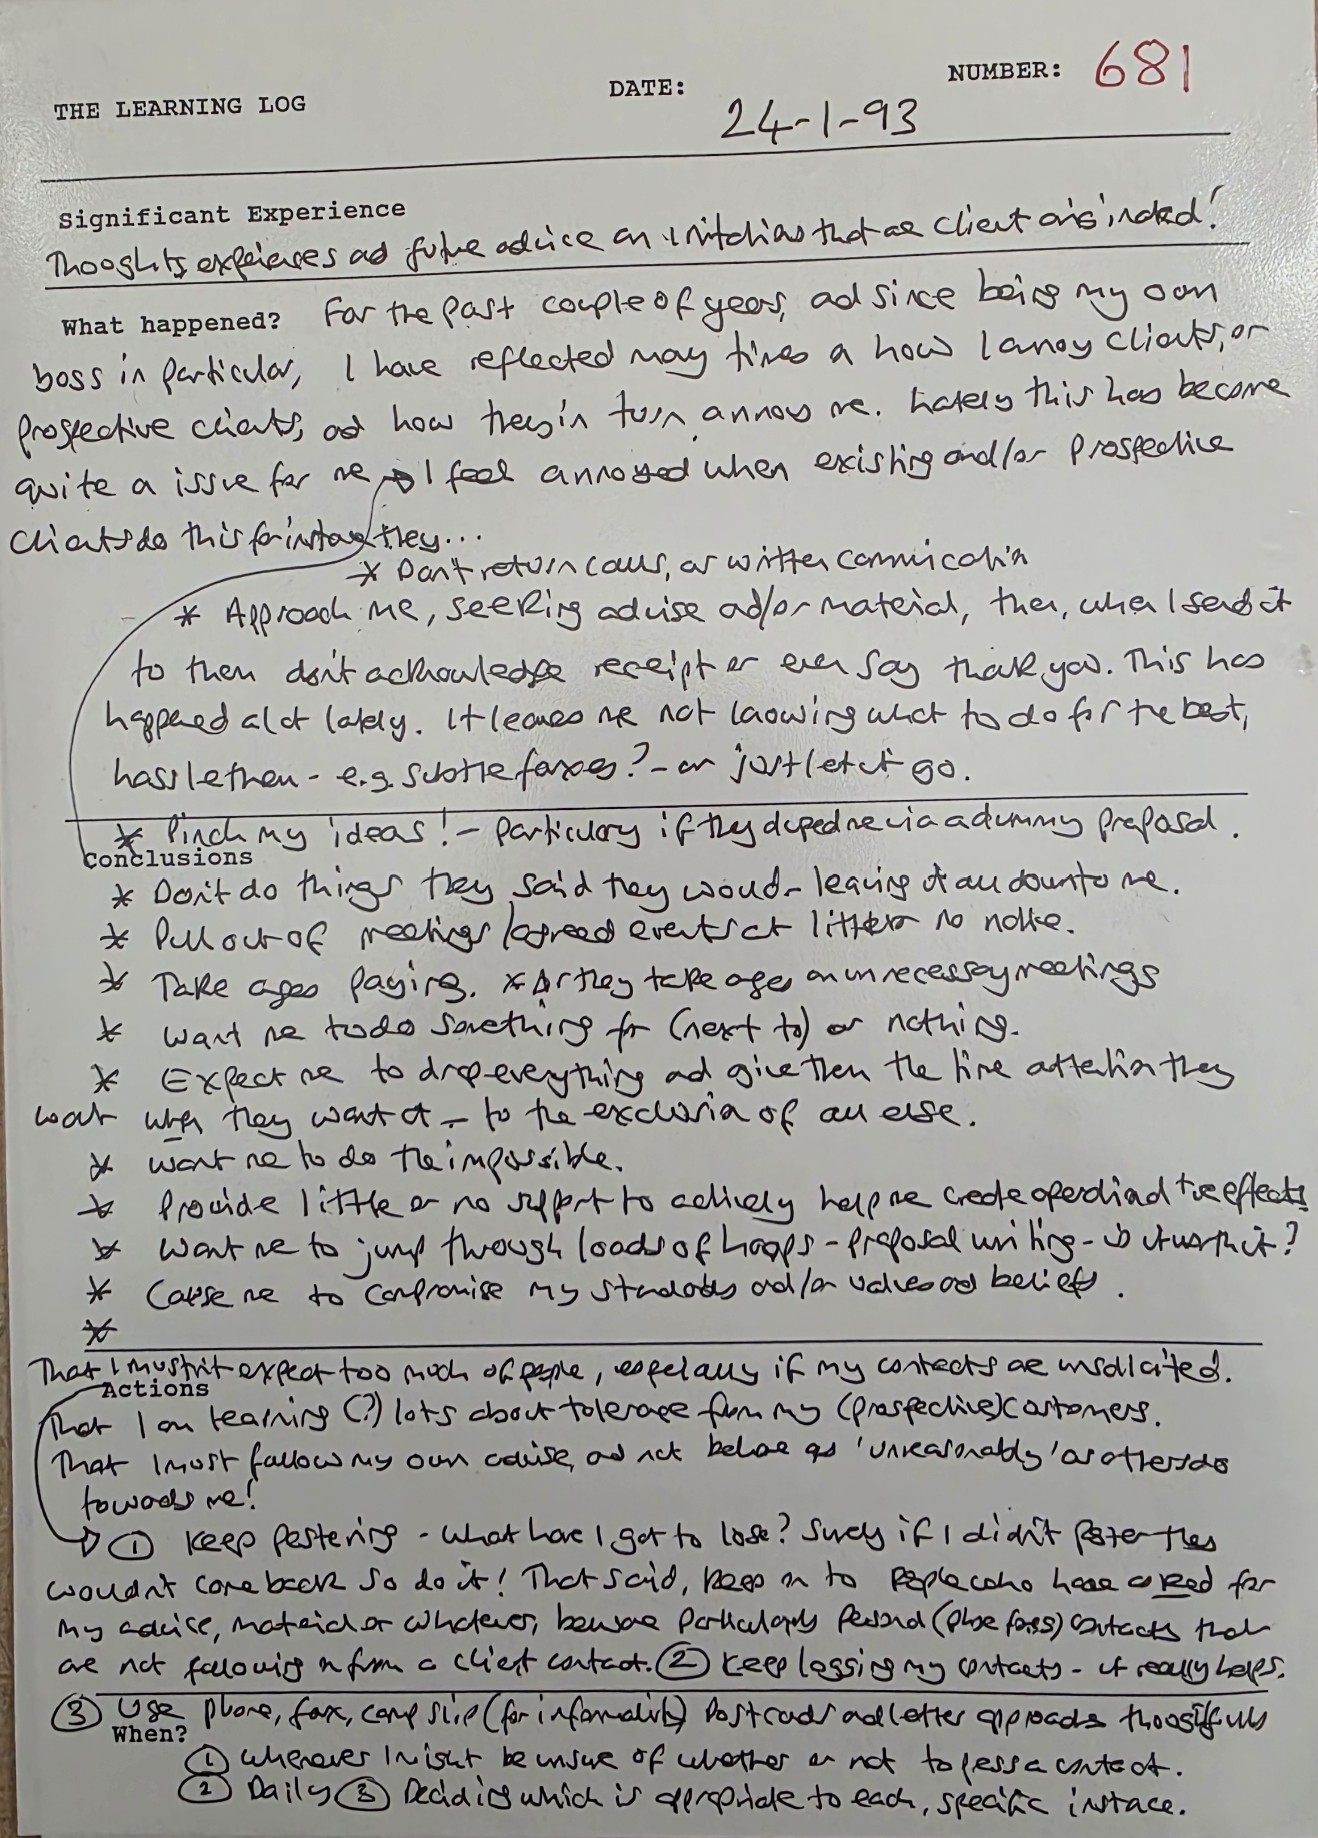 THE LEARNING LOG DATE: 24-1-93 NUMBER: 681
Significant Experience
Thoughts, experiences and future advice on initiatives that are client orientated!
What happened? For the past couple of years, and since being my own
boss in particular, I have reflected many times on how I annoy clients, or
prospective clients, and how they in turn annoy me. Lately this has become
quite an issue for me → I feel annoyed when existing and/or prospective
clients do this for instance they...
* Don't return calls, or written communication
* Approach me, seeking advise and/or material, then, when I send it
to them don't acknowledge receipt or even say thank you. This has
happened a lot lately. It leaves me not knowing what to do for the best,
hassle them - e.g. subtle faxes? - or just let it go.
* Pinch my ideas! - particulary if they duped me via a dummy proposal.
Conclusions
* Don't do things they said they would - leaving it all down to me.
* Pull out of meetings/agreed events at little or no notice.
* Take ages paying. * Or they take ages on unnecessary meetings
* Want me to do something for (next to) or nothing.
* Expect me to drop everything and give them the time attention they
want when they want it - to the exclusion of all else.
* Want me to do the impossible.
* Provide little or no support to actively help me create operational +ve effects
* Want me to jump through loads of hoops - proposal writing - is it worth it?
* Cause me to compromise my standards and/or values and beliefs.
*
That I mustn't expect too much of people, especially if my contacts are unsolicited.
Actions
That I am learning (?) lots about tolerance from my (prospective) customers.
That I must follow my own advise, and not behave as 'unreasonably' as others do
towards me!
→ ① Keep pestering - what have I got to lose? Surely if I didn't pester they
wouldn't come back so do it! That said, keep on to people who have asked for
my advice, material or whatever, beware particularly personal (phone faxes) contacts that
are not following on from a client contact. ② Keep logging my contacts - it really helps.
③ Use phone, fax, comp slip (for informality) postcards and letter approaches thoughtfully
When?
① Whenever I might be unsure of whether or not to pess a contact.
② Daily ③ Deciding which is appropriate to each, specific instance.